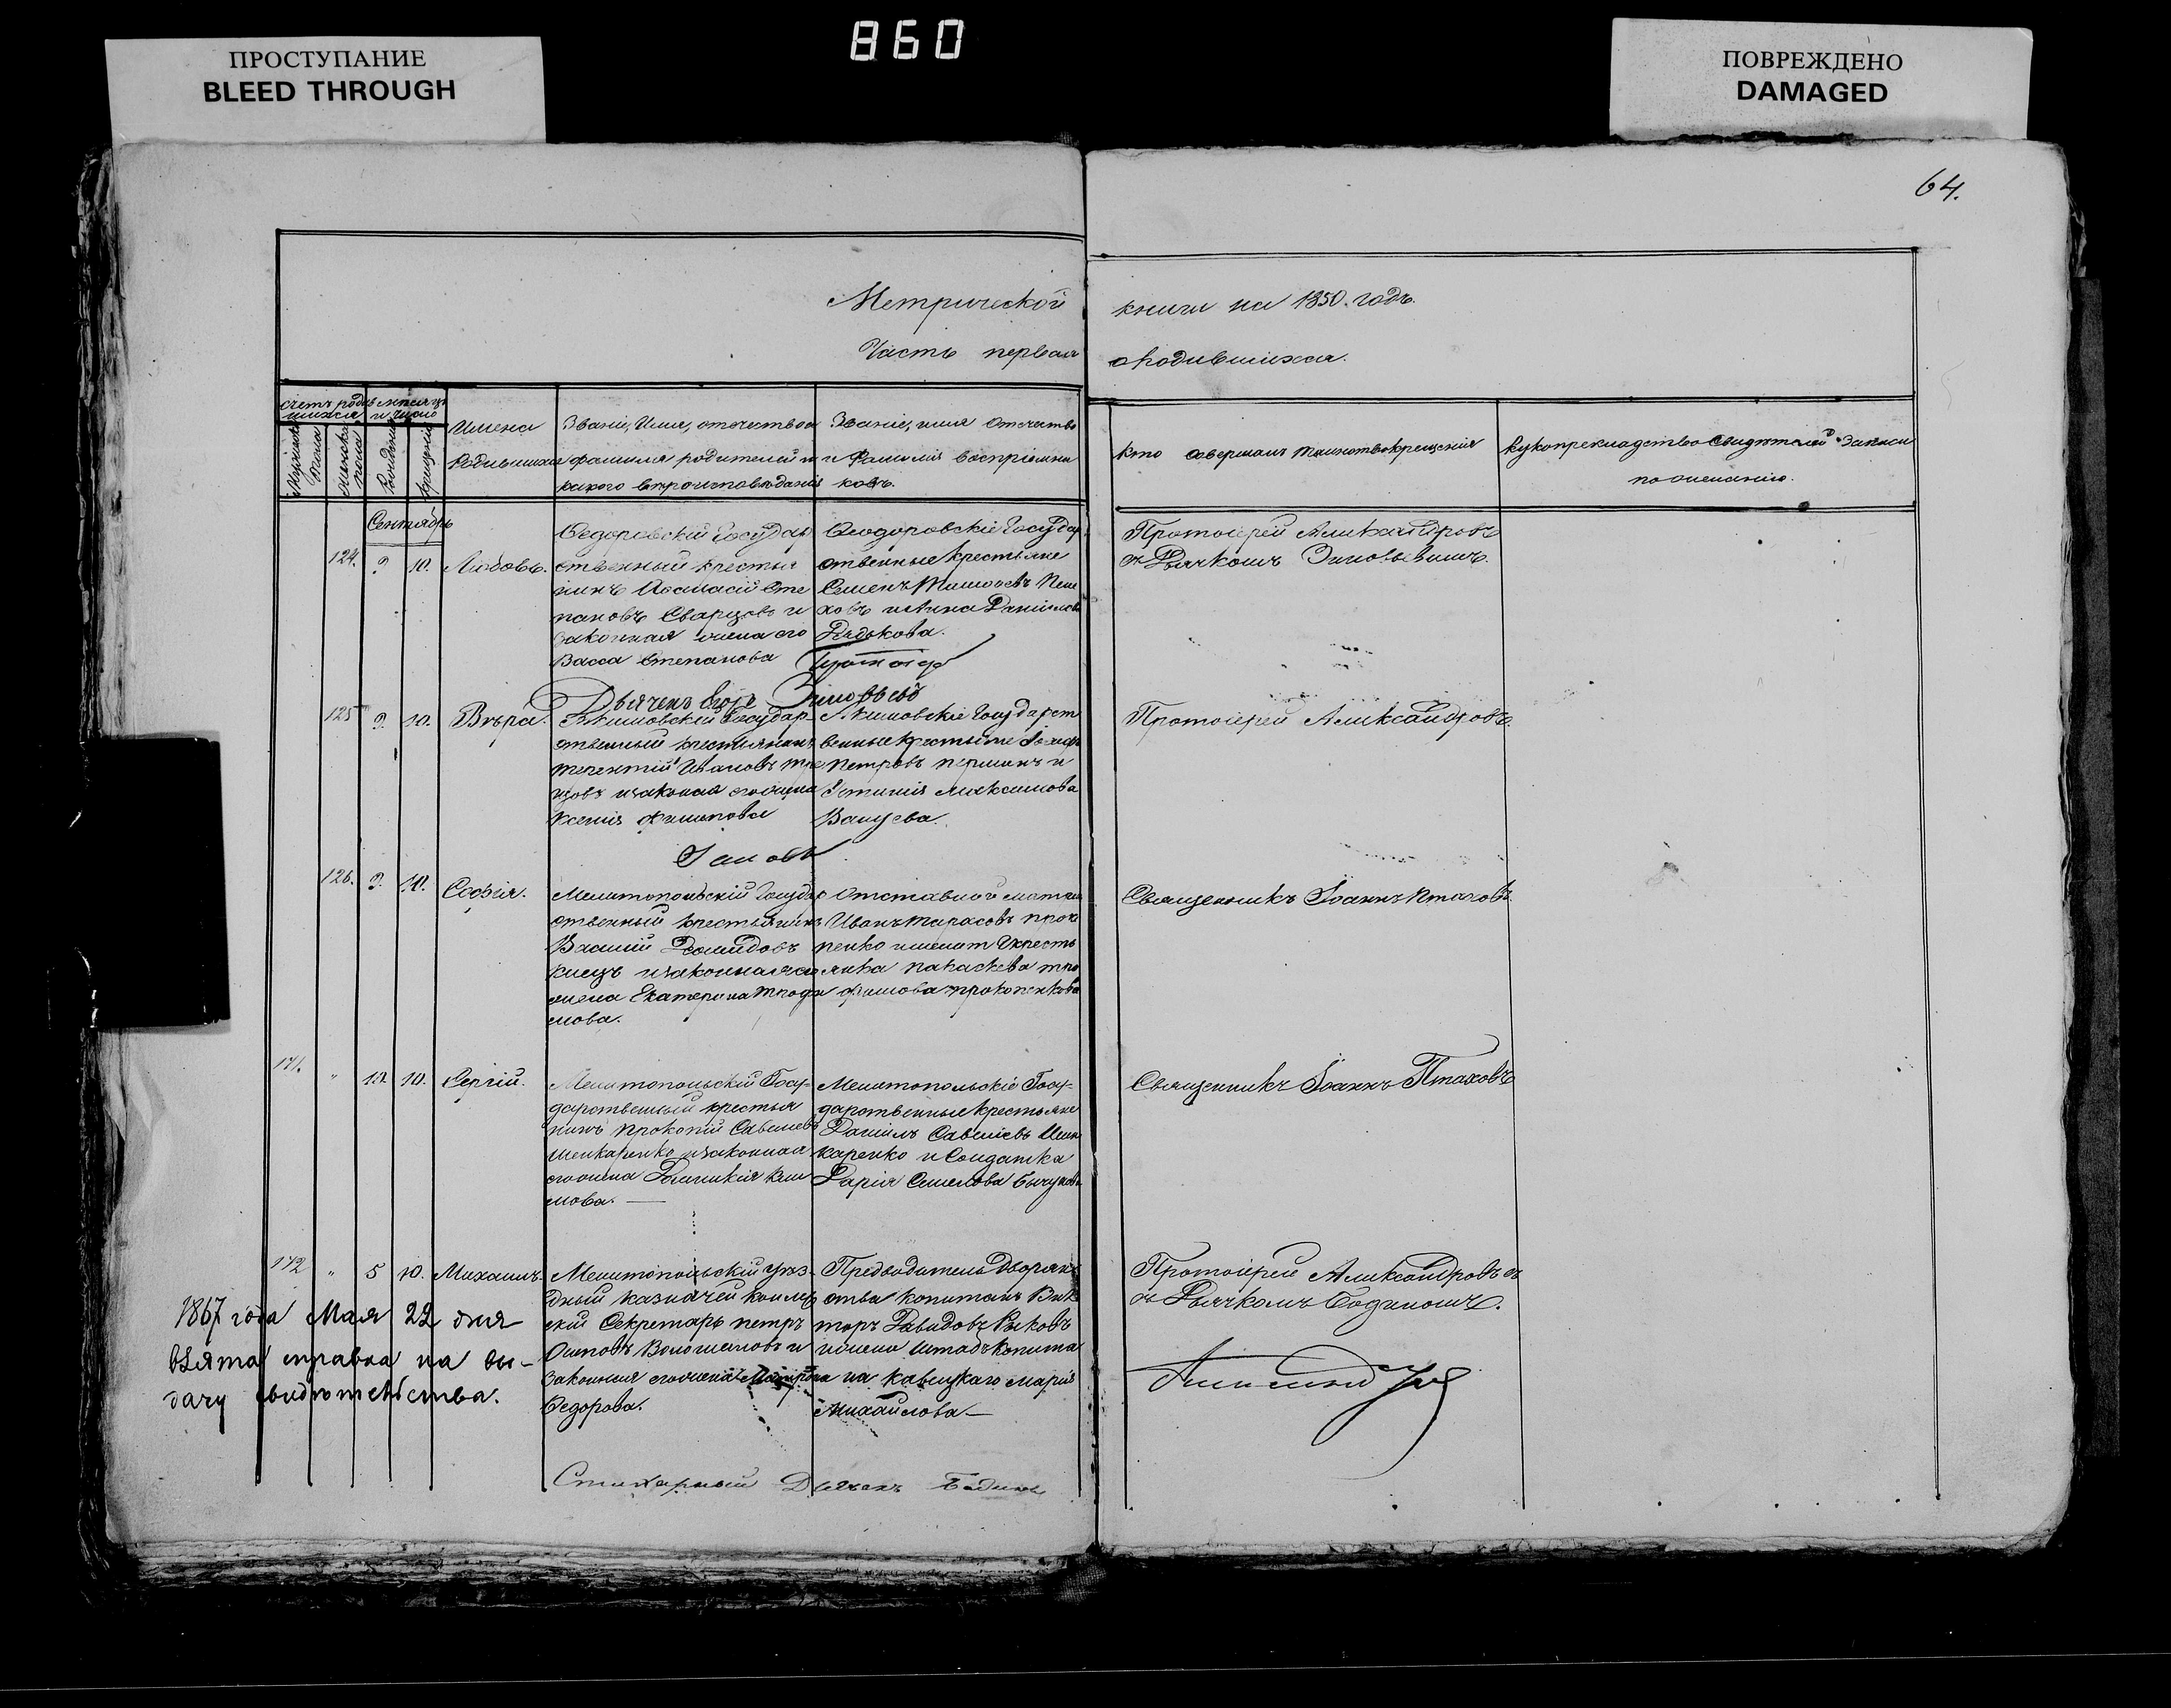 ПРОСТУПАНИЕ
BLEED THROUGH
860
ПОВРЕЖДЕНО
DAMAGED
64.
Метрической книги на 1850. годъ.
Часть первая о родившихся.
счетъ родив месяцъ
шихся и число
Мужеска
пола
женска
пола
рождения
крещения
Имена
родившихся
Званіе, Имя, отечество и
фамилія родителей и
какого вероисповеданія
Званіе, имя отечество
и Фамилія воспріемни
ковъ.
Кто совершалъ таинство крещенія
Рукоприкладство свидетелей записи
по желанію.
Сентябрь
124. 9 10. Любовь.
Федоровскій Государ
ственный крестья
нинъ Сте
пановъ Сварцовъ и
законная жена его
Васса Степанова
Феодоровскіе Государ
ственные крестьяне
Семенъ
ховъ и Анна Даніилова
Дядькова.
Протоіерей Александровъ
съ Дьячкомъ Зиновьевымъ.
Дьячекъ Зиновьевъ
125 9. 10. Вѣра.
Акимовскій Государ
ственный крестьянинъ
Терентій Ивановъ
цовъ и законая его жена
Ксенія Филипова
Акимовскіе Государст
венные крестьяне
Петровъ и
Устинія Максимова
Ванцева.
Протоіерей Александровъ.
126. 9. 10. Софія.
Мелитопольскій Государ
ственный крестьянинъ
Василій Демидовъ
и законная его
жена Екатерина Трофи
мова.
Отставной матрос
Иванъ Тарасовъ проко
пенко и крестья
янка тро
фимова прокопенкова
Священникъ Іоаннъ Птаховъ.
171. " 10. 10. Сергій.
Мелитопольскій Госу-
дарственный крестья
нинъ Прокопій Савельевъ
Шенкаренко и законная
его жена Кли
мова.
Мелитопольскіе Госу-
дарственные крестьяне
Даніилъ Савеліевъ Шен
каренко и Солдатка
Дарія Семенова
Священникъ Іоаннъ Птаховъ
172 " 5 10. Михаилъ.
Мелитопольскій Уѣз-
дный казначей коллеж
скій Секретарь петръ
Осиповъ Волошановъ и
законная его жена
Федорова.
Предводитель Дворян
ства капитанъ Вик
торъ Давидовъ Рыковъ
и жена Штабъ капита
на Кавецкаго марія
Михайлова—
Протоіерей Александровъ съ
съ Дьячкомъ Бодинымъ.
1867 года Мая 22 дня
взята справка на вы-
дачу свидѣтельства.
Стихарный Дьячекъ Бодинъ